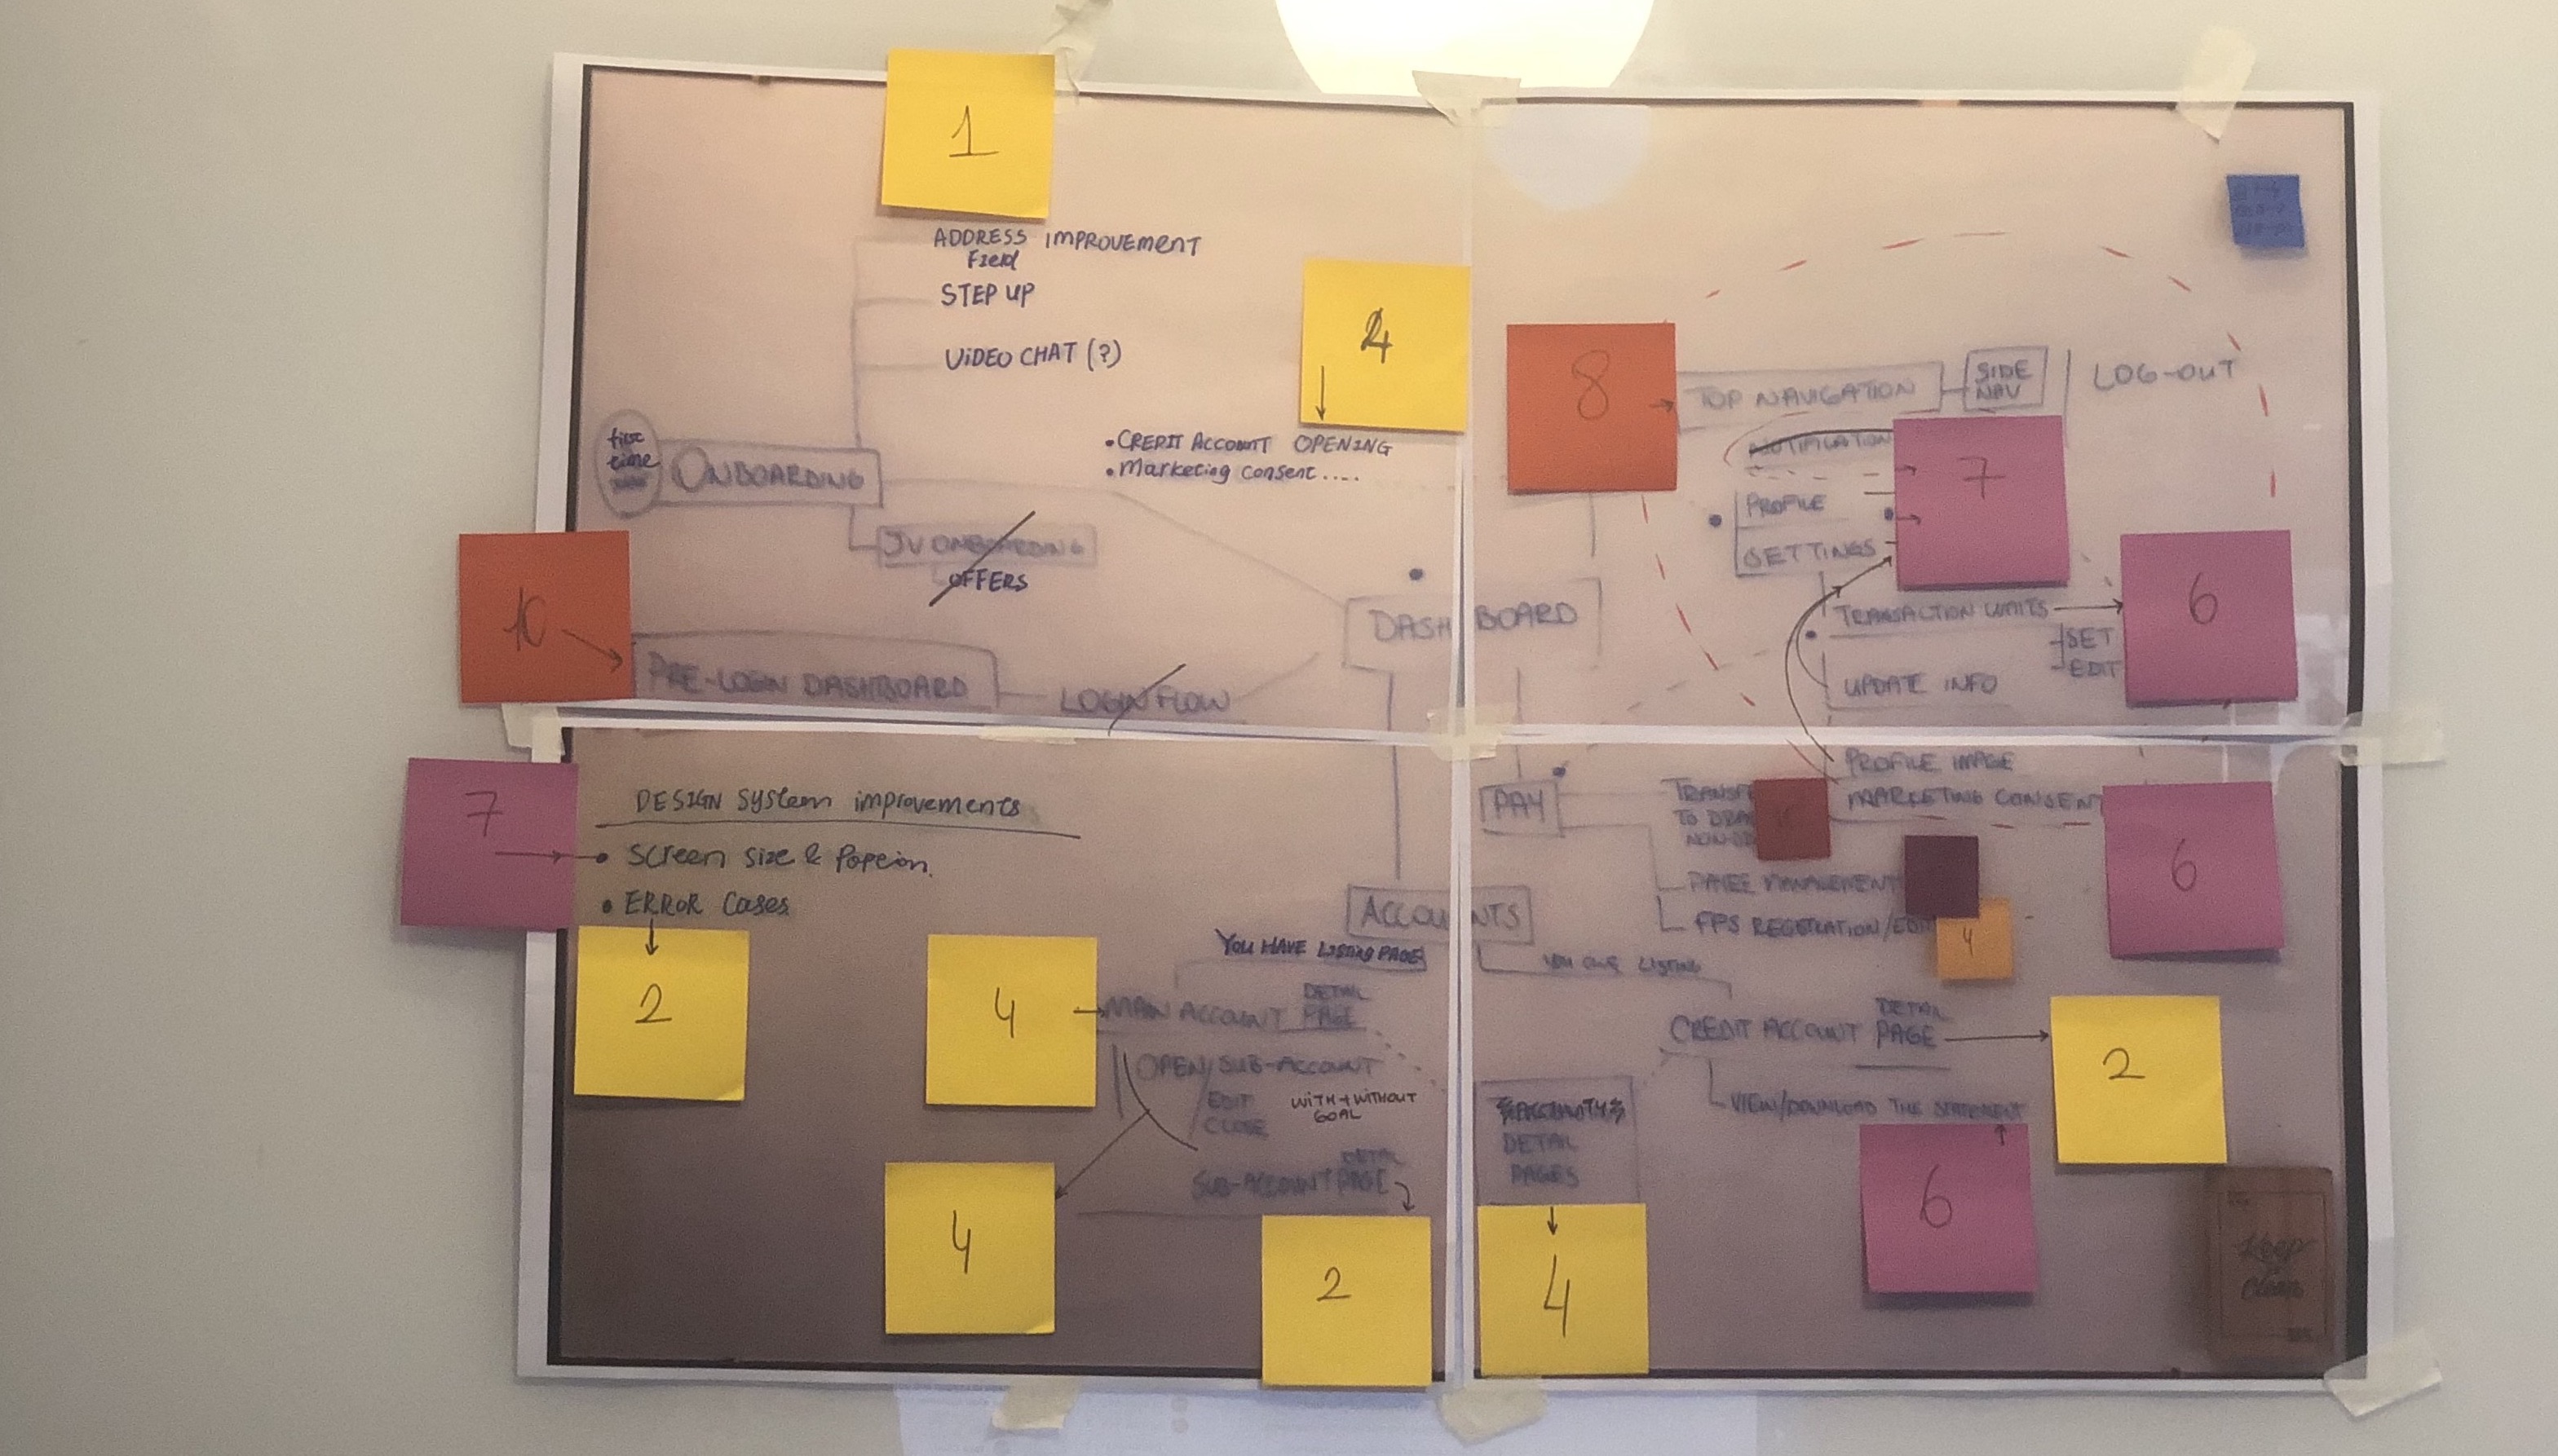 1
ADDRESS IMPROVEMENT
Field
STEP UP
VIDEO CHAT (?)
4
• CREDIT ACCOUNT OPENING
• Marketing consent ....
first
time
ONBOARDING
JV ONBOARDING
OFFERS
10
PRE-LOGIN DASHBOARD
LOGIN FLOW
DASHBOARD
8
TOP NAVIGATION
SIDE
NAV
LOG-OUT
NOTIFICATION
7
PROFILE
SETTINGS
TRANSACTION LIMITS
6
SET
EDIT
UPDATE INFO
PROFILE IMAGE
MARKETING CONSENT
6
7
DESIGN System improvements
• Screen Size &
• ERROR Cases
2
4
YOU HAVE LISTING PAGE
MAIN ACCOUNT DETAIL
PAGE
OPEN/SUB-ACCOUNT
EDIT
CLOSE
WITH + WITHOUT
GOAL
4
SUB-ACCOUNT DETAIL
PAGE
2
ACCOUNTS
PAY
TRANSF
TO
NON-
PAYEE MANAGEMENT
FPS REGISTRATION/EDIT
4
YOU OWE LISTING
CREDIT ACCOUNT DETAIL
PAGE
2
VIEW/DOWNLOAD THE STATEMENT
6
DETAIL
PAGES
4
Keep
Clean